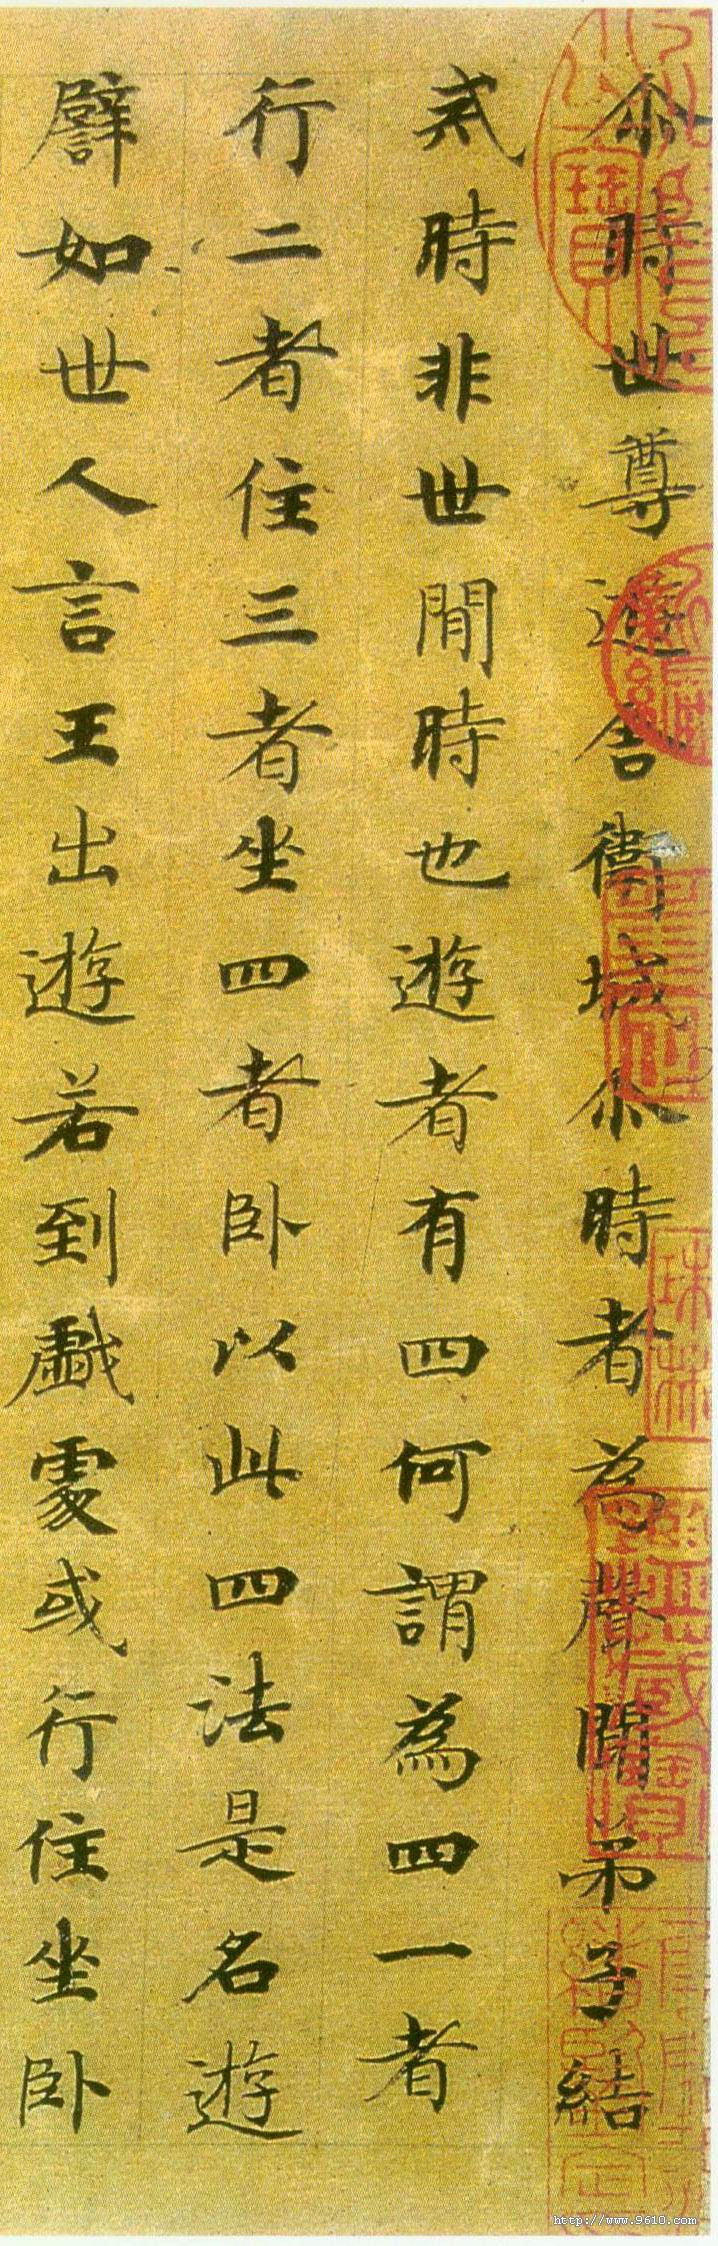 尒時世尊遊舍衛城尒時者為聲聞弟子結
戒時非世閒時也遊者有四何謂為四一者
行二者住三者坐四者卧以此四法是名遊
譬如世人言王出遊若到戱處或行住坐卧
珠林
http://www.9610.com